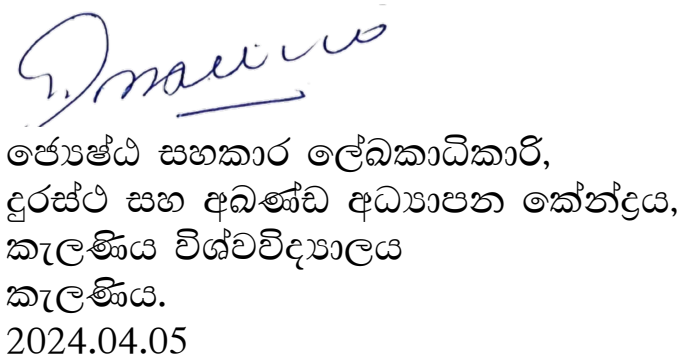 ජ්‍යෙෂ්ඨ සහකාර ලේඛකාධිකාරි,
දුරස්ථ සහ අඛණ්ඩ අධ්‍යාපන කේන්ද්‍රය,
කැලණිය විශ්වවිද්‍යාලය
කැලණිය.
2024.04.05